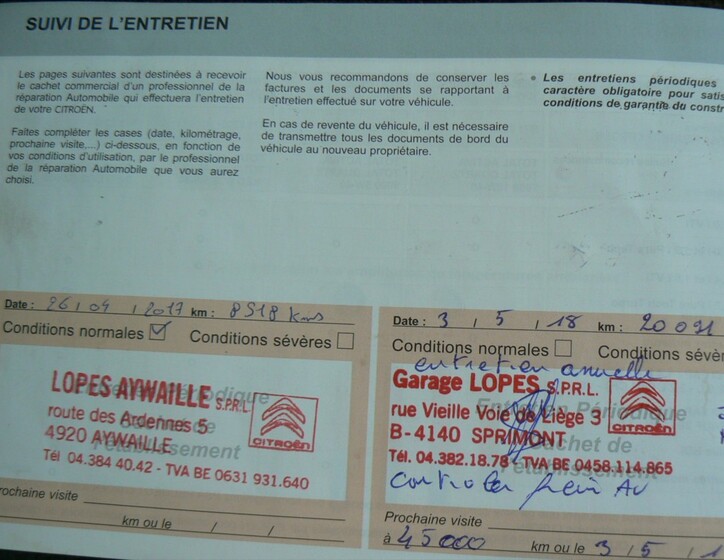 SUIVI DE L'ENTRETIEN
Les pages suivantes sont destinées à recevoir
le cachet commercial d'un professionnel de la
réparation Automobile qui effectuera l'entretien
de votre CITROËN.
Faites compléter les cases (date, kilométrage,
prochaine visite,...) ci-dessous, en fonction de
vos conditions d'utilisation, par le professionnel
de la réparation Automobile que vous aurez
choisi.
Nous vous recommandons de conserver les
factures et les documents se rapportant à
l'entretien effectué sur votre véhicule.
En cas de revente du véhicule, il est nécessaire
de transmettre tous les documents de bord du
véhicule au nouveau propriétaire.
• Les entretiens périodiques
caractère obligatoire pour satis
conditions de garantie du constr
Date : 26 / 04 / 2017 km : 8518 kms
Conditions normales ☑ Conditions sévères ☐
LOPES AYWAILLE S.P.R.L.
route des Ardennes 5
4920 AYWAILLE
Tél 04.384 40.42 - TVA BE 0631 931.640
CITROËN
Prochaine visite
km ou le / /
Date : 3 / 5 / 18 km : 20 091
Conditions normales ☐ Conditions sévè
entretien annuelle
Garage LOPES S.P.R.L.
rue Vieille Voie de Liège 3
B-4140 SPRIMONT
Tél. 04.382.18.78 - TVA BE 0458.114.865
CITROËN
Entretien Périodique
Cachet de
l'établissement
controler frein AV
Prochaine visite
à 45000 km ou le 3 / 5 / 1